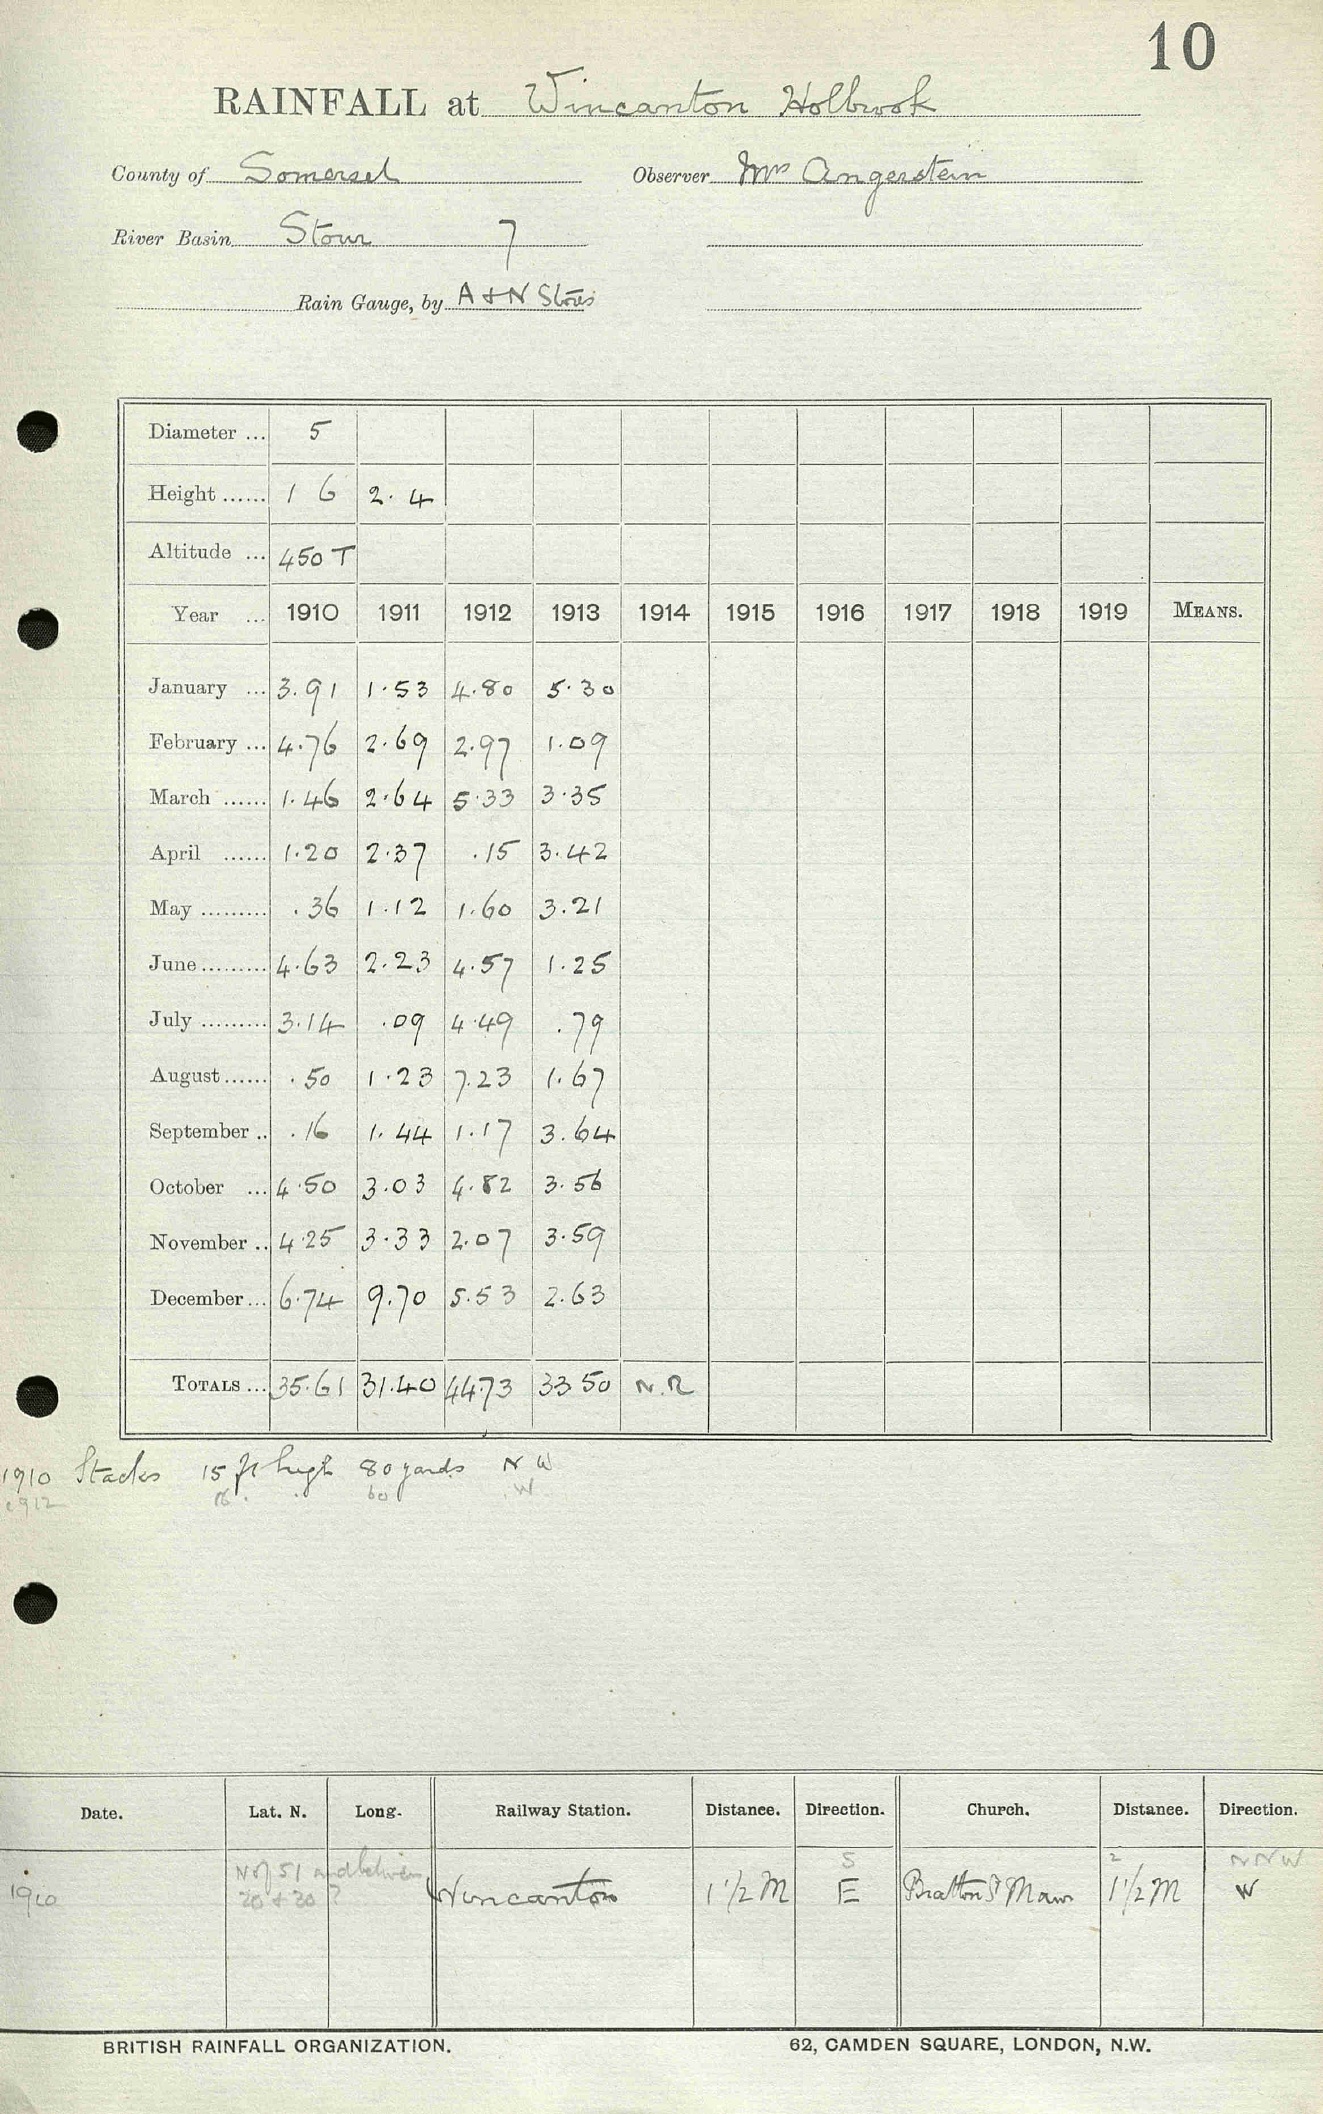 10
RAINFALL at Wincanton Holbrook
County of Somerset Observer Mrs Angerstein
River Basin Stour 7
Rain Gauge, by A & N Stores
Diameter ... 5
Height ...... 1 6 2. 4
Altitude ... 450 T
Year ... 1910 1911 1912 1913 1914 1915 1916 1917 1918 1919 MEANS.
January ... 3.91 1.53 4.80 5.30
February ... 4.76 2.69 2.97 1.09
March ...... 1.46 2.64 5.33 3.35
April ...... 1.20 2.37 .15 3.42
May ......... .36 1.12 1.60 3.21
June ......... 4.63 2.23 4.57 1.25
July ......... 3.14 .09 4.49 .79
August ...... .50 1.23 7.23 1.67
September .. .16 1.44 1.17 3.64
October ... 4.50 3.03 4.82 3.56
November .. 4.25 3.33 2.07 3.59
December ... 6.74 9.70 5.53 2.63
TOTALS ... 35.61 31.40 44.73 33.50 N.R
1910 Stacks 15 ft high 80 yards N W
1912 60 W
Date. Lat. N. Long. Railway Station. Distance. Direction. Church. Distance. Direction.
N of 51 and between S 2 NNW
1910 20 + 30 ? Wincanton 1 1/2 M E Bratton St Maur 1 1/2 M W
BRITISH RAINFALL ORGANIZATION. 62, CAMDEN SQUARE, LONDON, N.W.